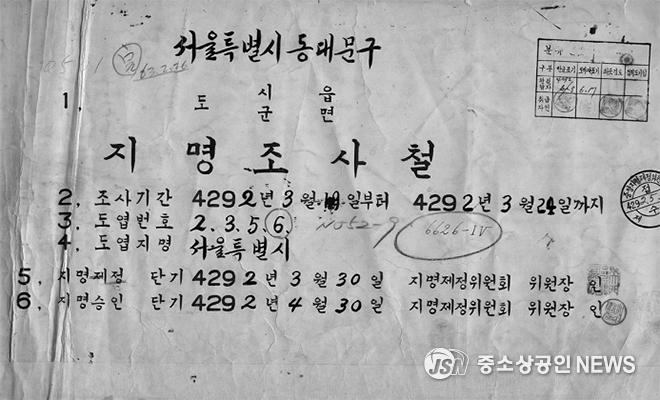 서울특별시 동대문구
1. 도 시 읍
군 면
지 명 조 사 철
2. 조사기간 4292년 3월 일부터 4292년 3월 24일까지
3. 도엽번호 2.3.5.6. NO52-9 6626-IV
4. 도엽지명 서울특별시
5. 지명제정 단기 4292년 3월 30일 지명제정위원회 위원장 인
6. 지명승인 단기 4292년 4월 30일 지명제정위원회 위원장 인
JSN 중소상공인NEWS